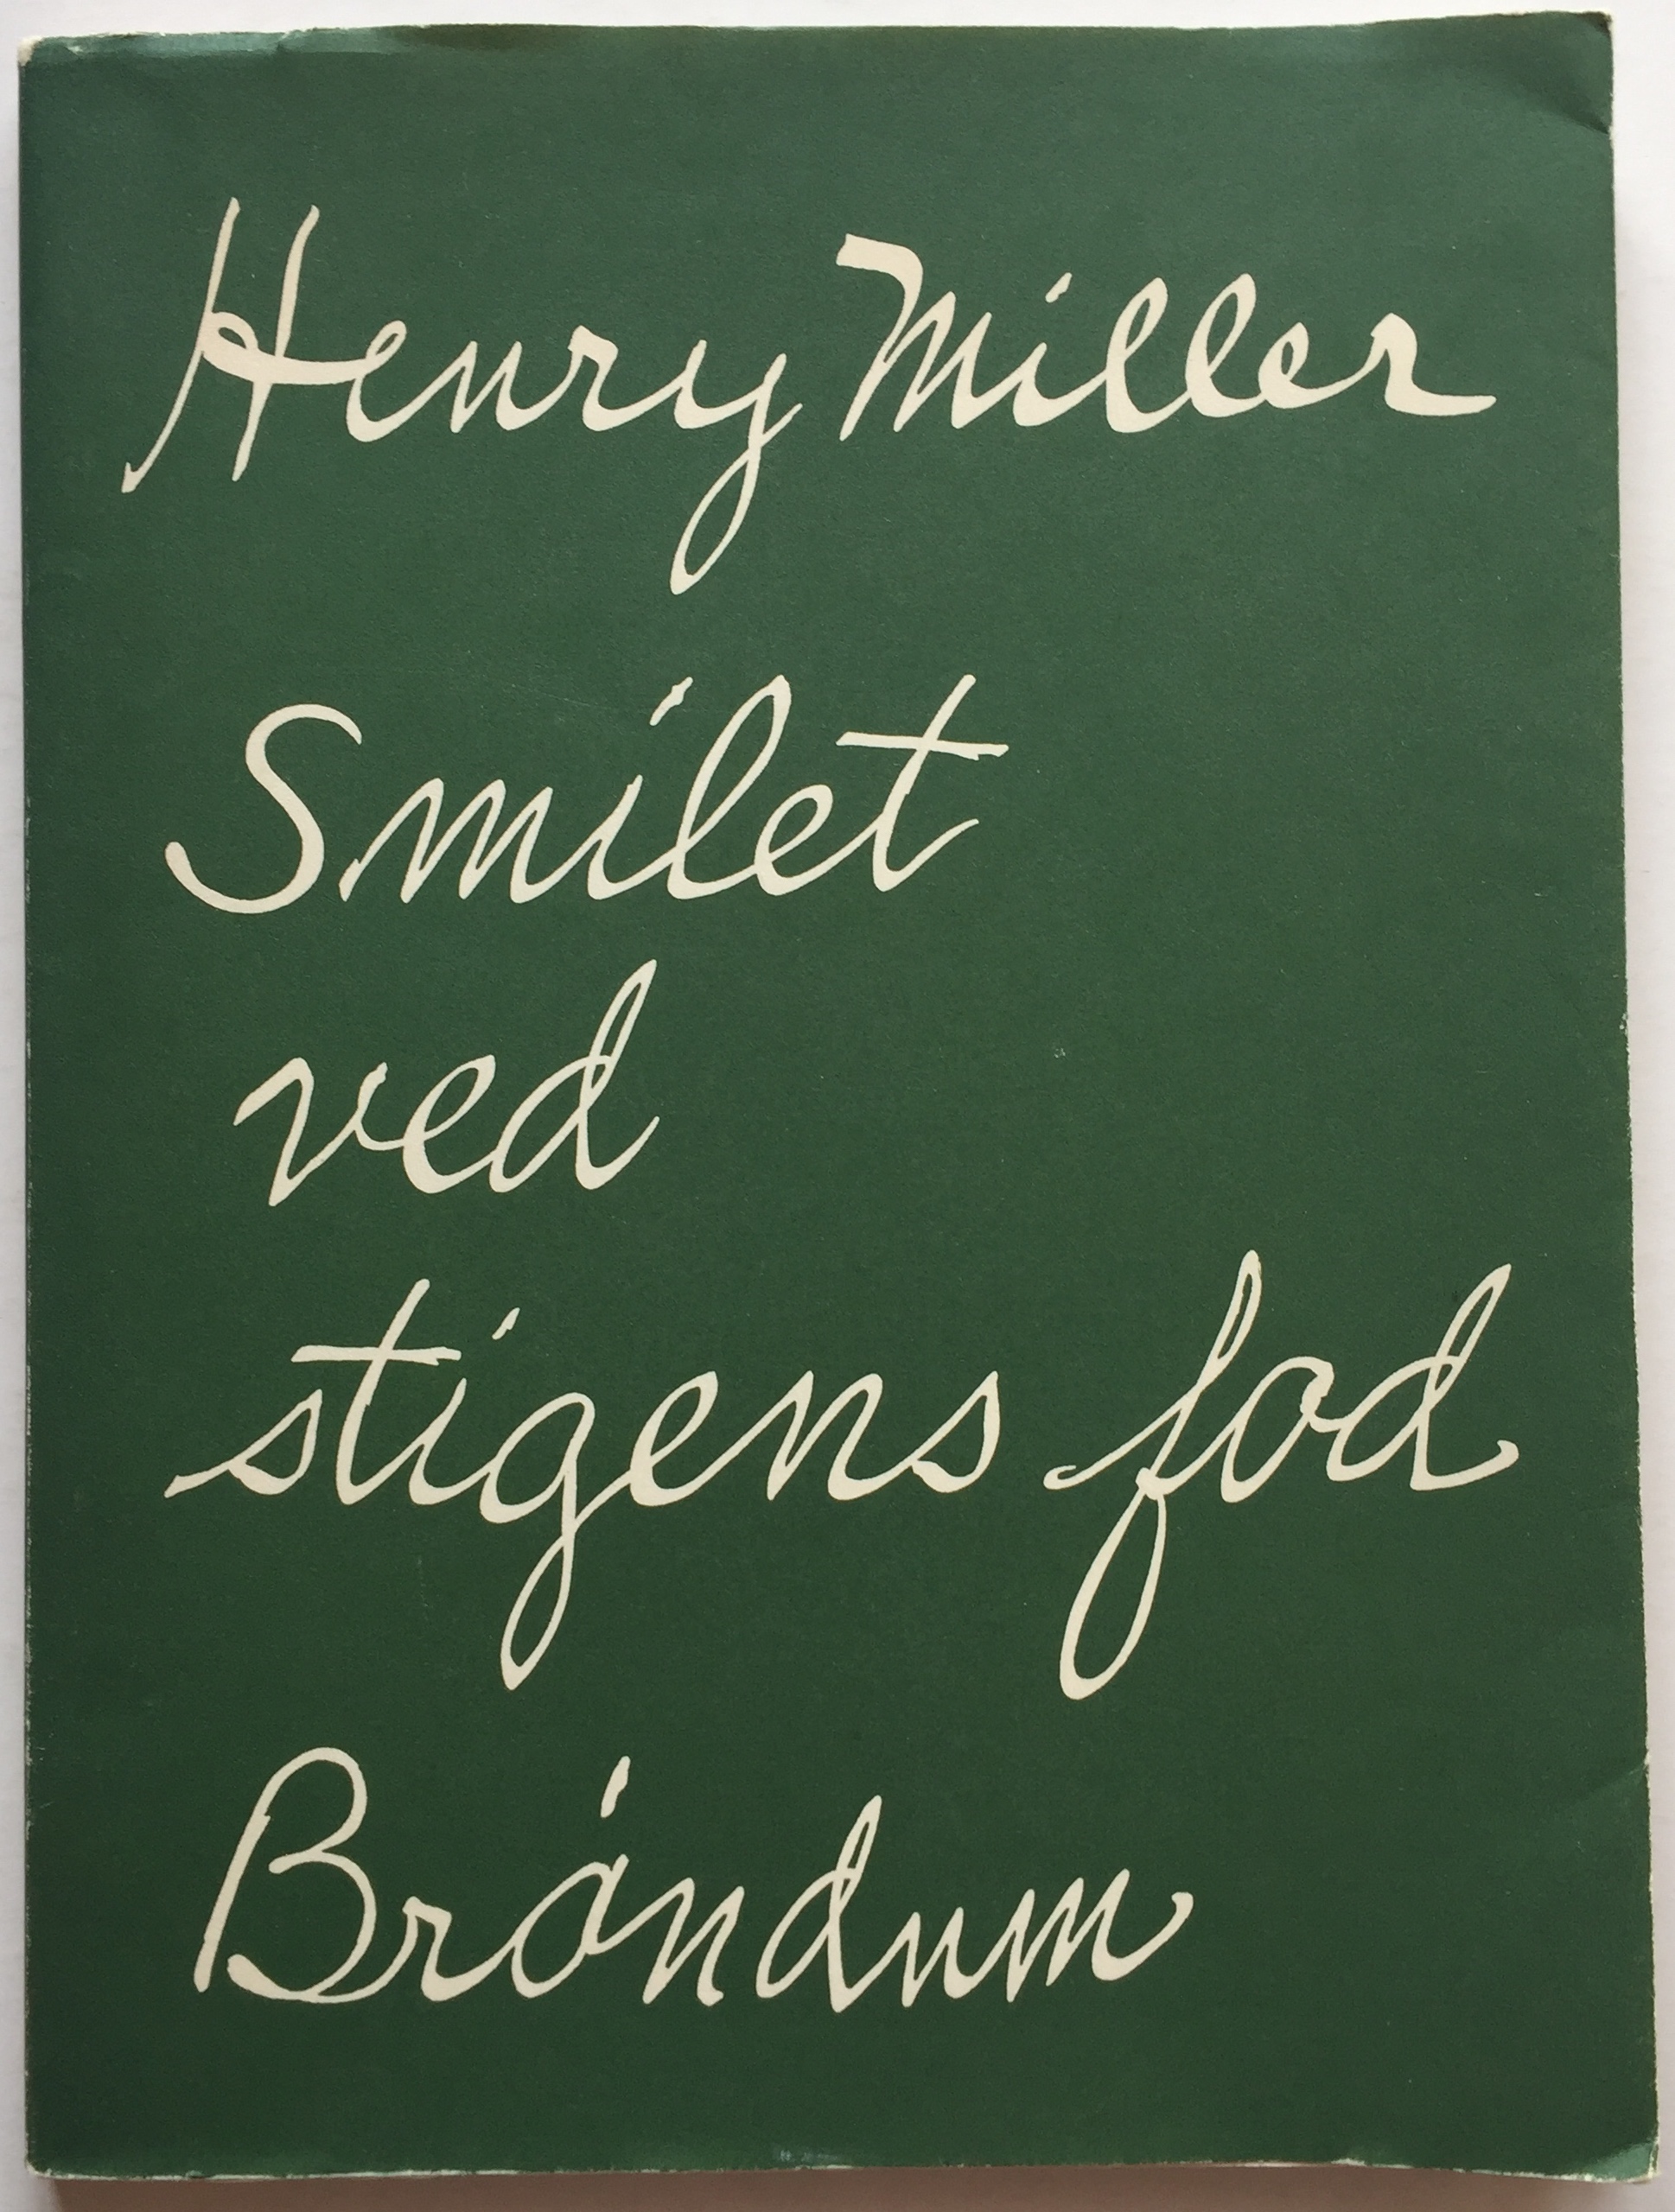 Henry Miller
Smilet
ved
stigens fod
Brøndum